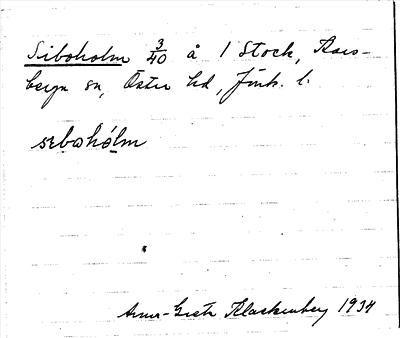 Siboholm 3/40 å 1 Stock, Kors-
berga sn, Östra hd, Jönk. l.
sɛbohólm
Anna-Greta Klackenberg 1934